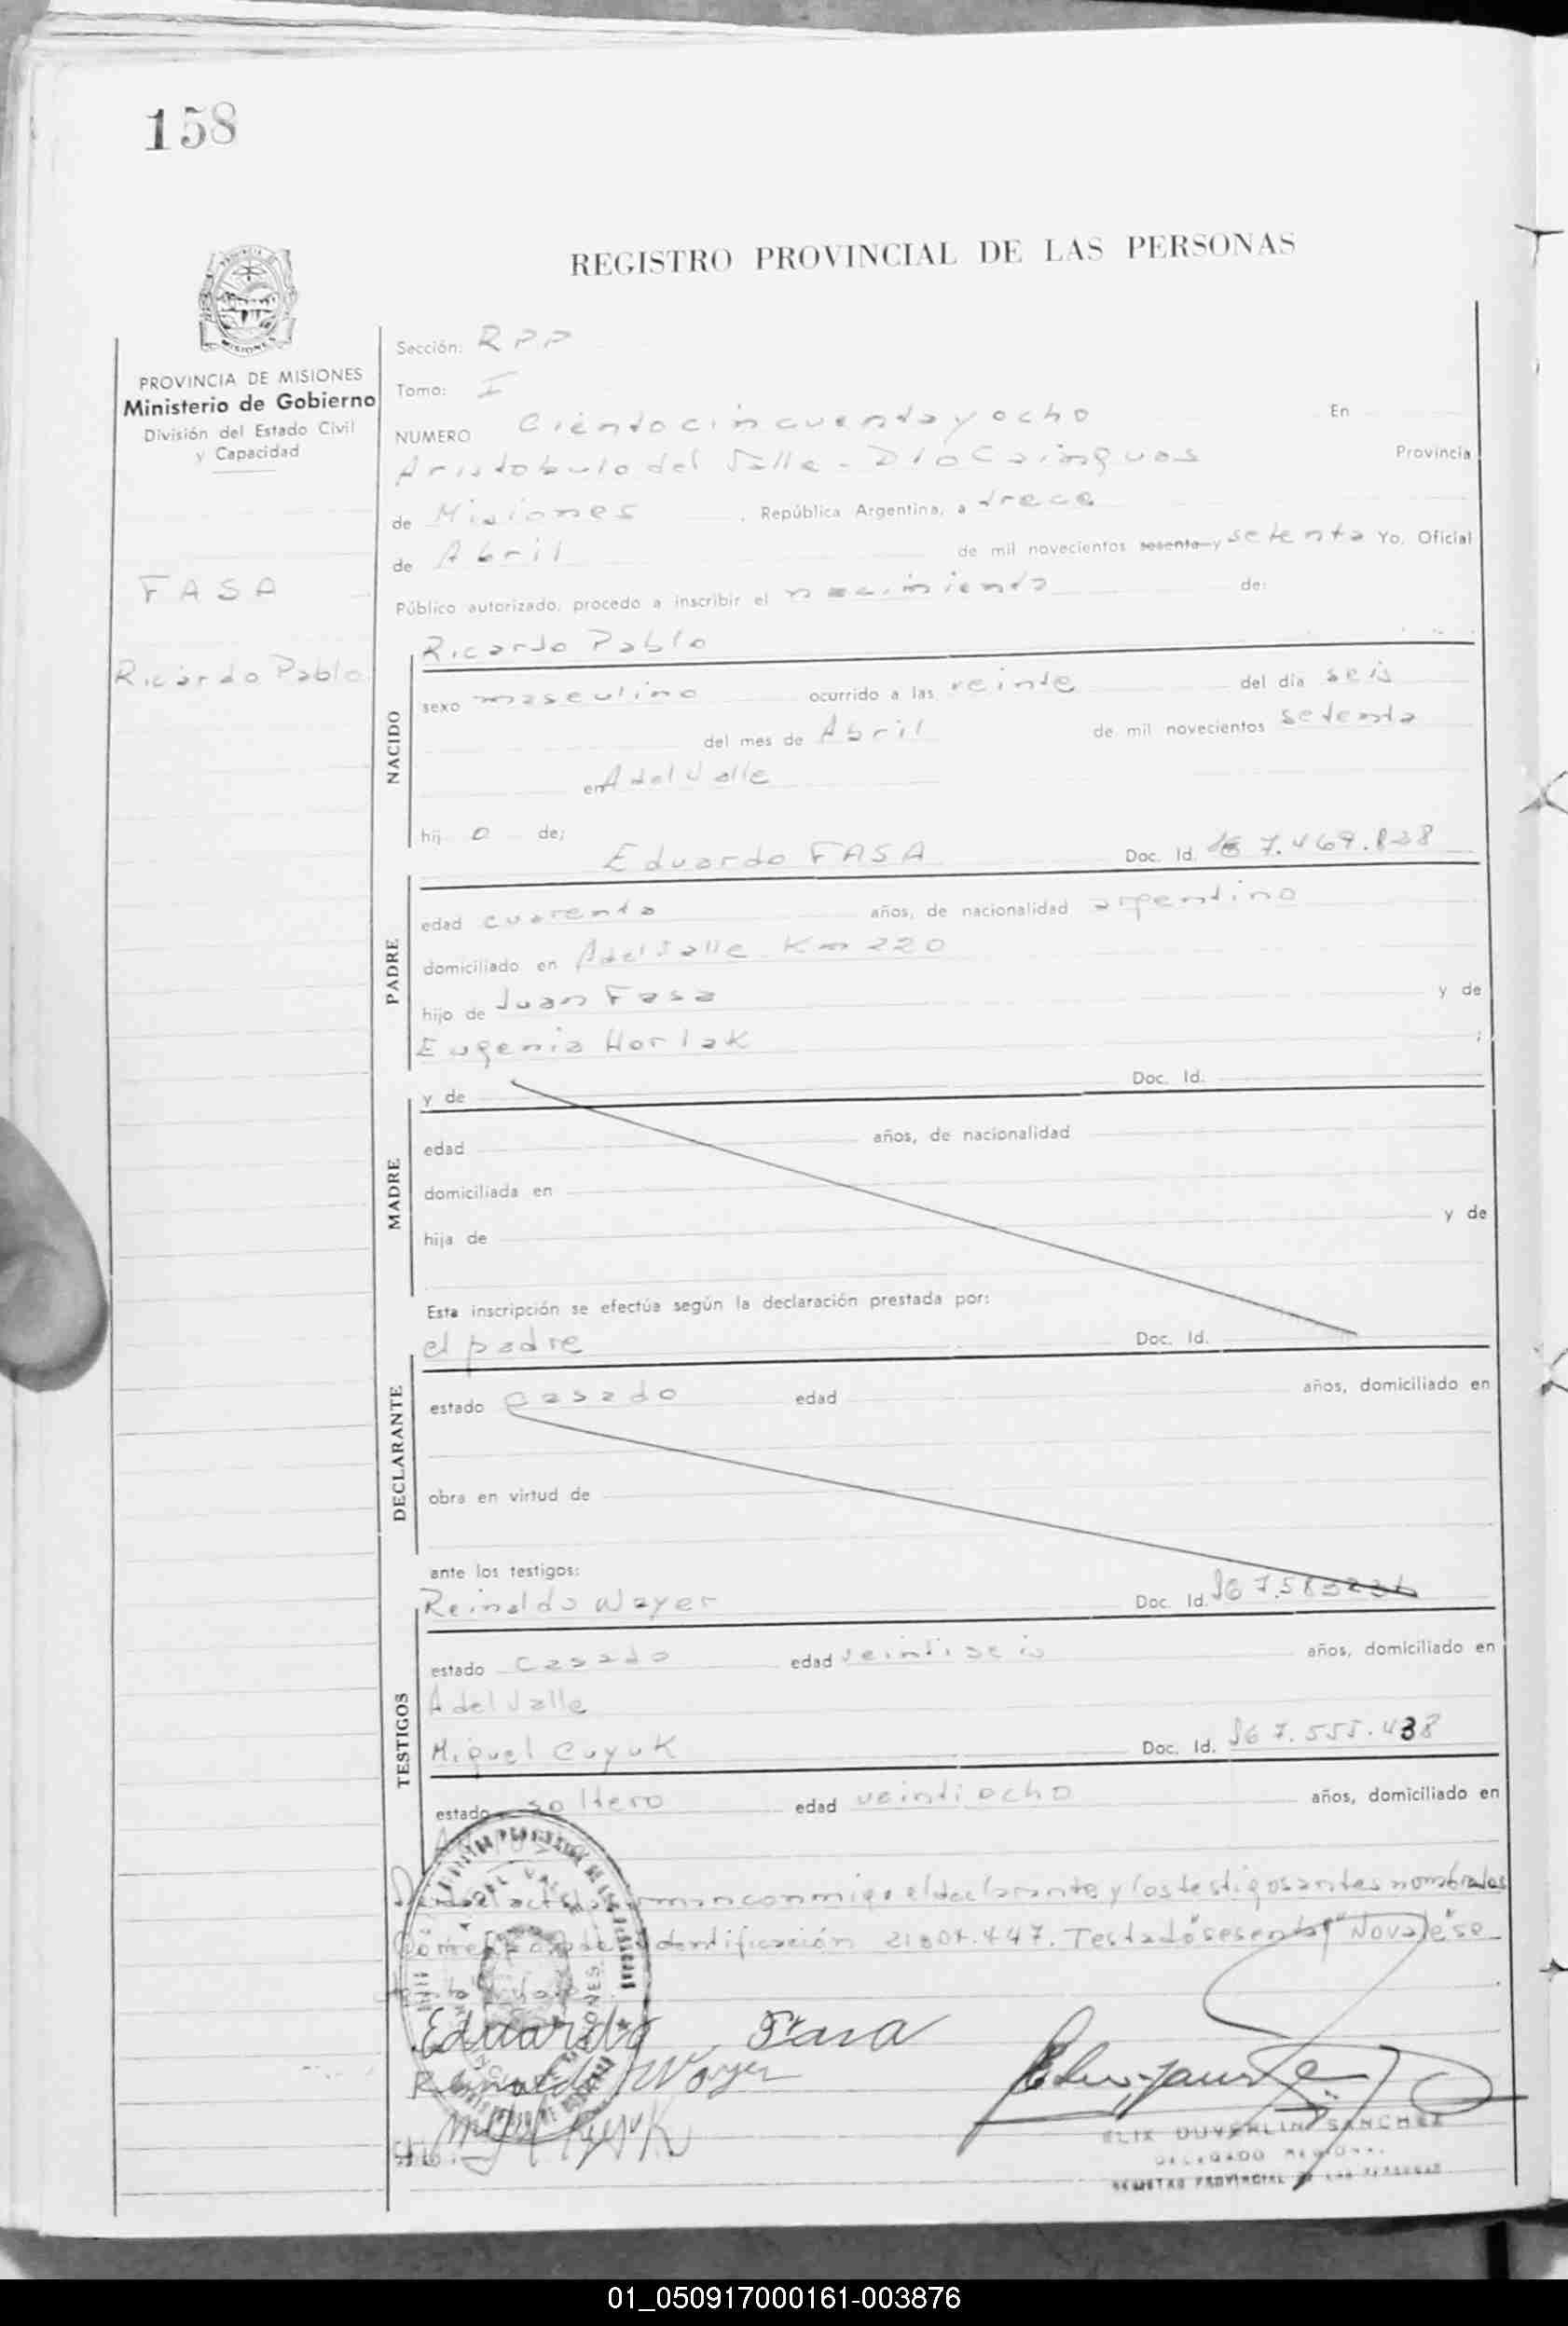 158
REGISTRO PROVINCIAL DE LAS PERSONAS
PROVINCIA DE MISIONES
Ministerio de Gobierno
División del Estado Civil
y Capacidad
FASA
Ricardo Pablo
Sección: RPP
Tomo: I
NUMERO Ciento cincuenta y ocho En
Aristobulo del Valle - Dto Cainguas Provincia
de Misiones, República Argentina, a trece
de Abril de mil novecientos sesenta y setenta Yo, Oficial
Público autorizado, procedo a inscribir el nacimiento de:
Ricardo Pablo
NACIDO
sexo masculino ocurrido a las veinte del día seis
del mes de Abril de mil novecientos setenta
en A del Valle
hij o de;
Eduardo FASA Doc. Id. 7.469.838
PADRE
edad cuarenta años, de nacionalidad argentino
domiciliado en A del Valle Km 220
hijo de Juan Fasa y de
Eugenia Horlak ;
y de Doc. Id.
MADRE
edad años, de nacionalidad
domiciliada en
hija de y de
Esta inscripción se efectúa según la declaración prestada por:
el padre Doc. Id.
DECLARANTE
estado casado edad años, domiciliado en
obra en virtud de
ante los testigos:
Reinaldo Wayer Doc. Id.
TESTIGOS
estado casado edad veintiseis años, domiciliado en
A del Valle
Miguel Cuyuk Doc. Id. 7.555.438
estado soltero edad veintiocho años, domiciliado en
firman conmigo el declarante y los testigos antes nombrados
identificación 21.807.447. Testado "sesenta y" No vale se
Eduardo Fasa
Reinaldo Wayer
ELIX DUVERLING SANCHEZ
DELEGADO REGIONAL
REGISTRO PROVINCIAL DE LAS PERSONAS
01_050917000161-003876